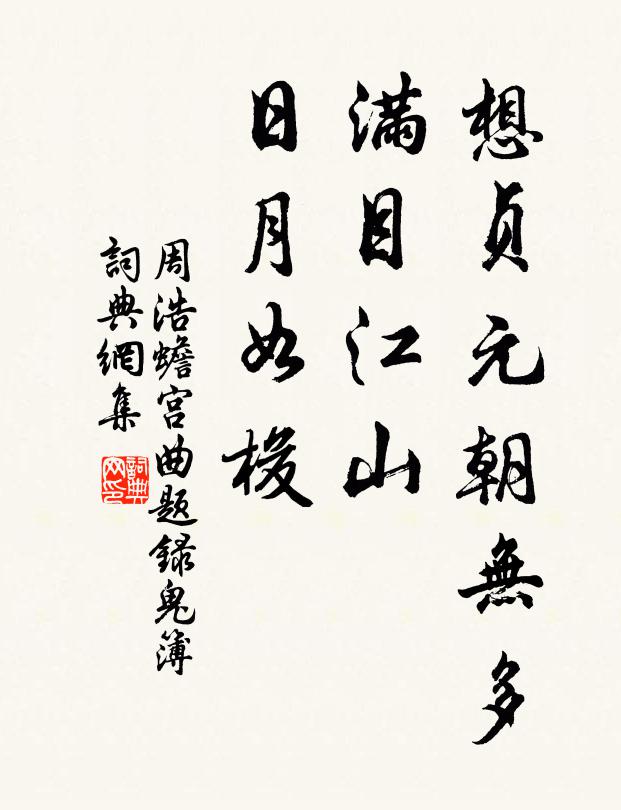 想貞元朝無多
滿目江山
日月如梭
周浩蟾宮曲題録鬼簿
詞典網集
詞典網印